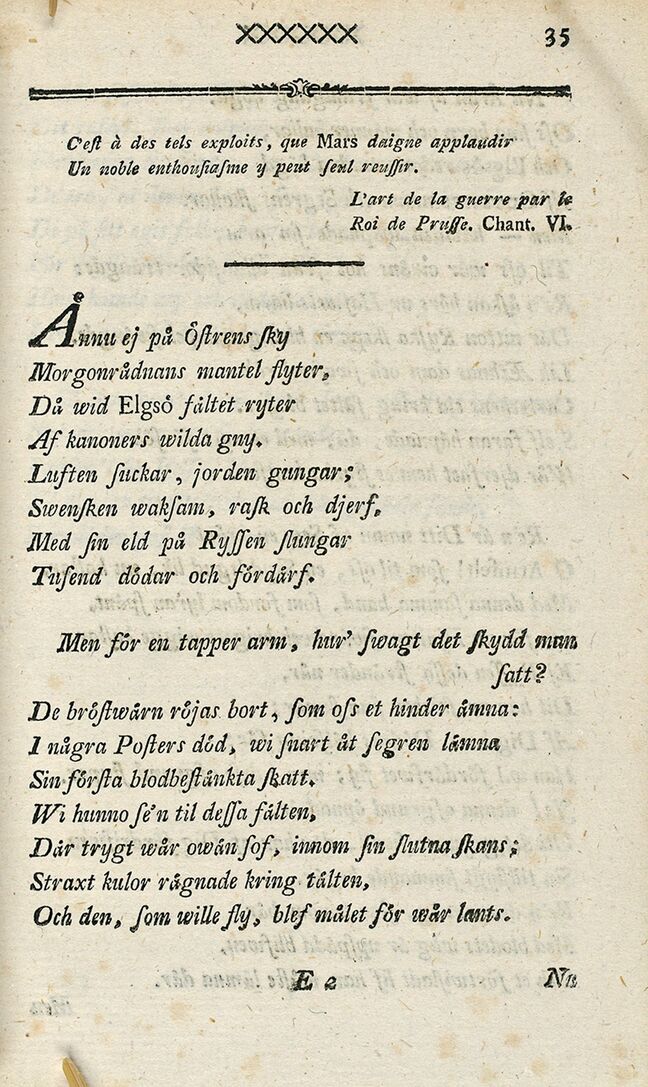 XXXXXX 35
C'eſt à des tels exploits, que Mars daigne applaudir
Un noble enthouſiaſme y peut ſeul reuſſir.
L'art de la guerre par le
Roi de Pruſſe. Chant. VI.
Ännu ej på Öſtrens ſky
Morgonrådnans mantel flyter,
Då wid Elgsö fältet ryter
Af kanoners wilda gny.
Luften ſuckar, jorden gungar;
Swenſken wakſam, raſk och djerf,
Med ſin eld på Ryſſen ſlungar
Tuſend dödar och fördärf.
Men för en tapper arm, hur' ſwagt det ſkydd man
ſatt?
De bröſtwärn röjas bort, ſom oſs et hinder ämna:
I några Poſters död, wi ſnart åt ſegren lämna
Sin förſta blodbeſtänkta ſkatt.
Wi hunno ſe'n til deſſa fälten,
Där trygt wår owän ſof, innom ſin ſlutna ſkans;
Straxt kulor rägnade kring tälten,
Och den, ſom wille fly, blef målet för wår lants.
E 2 Nu